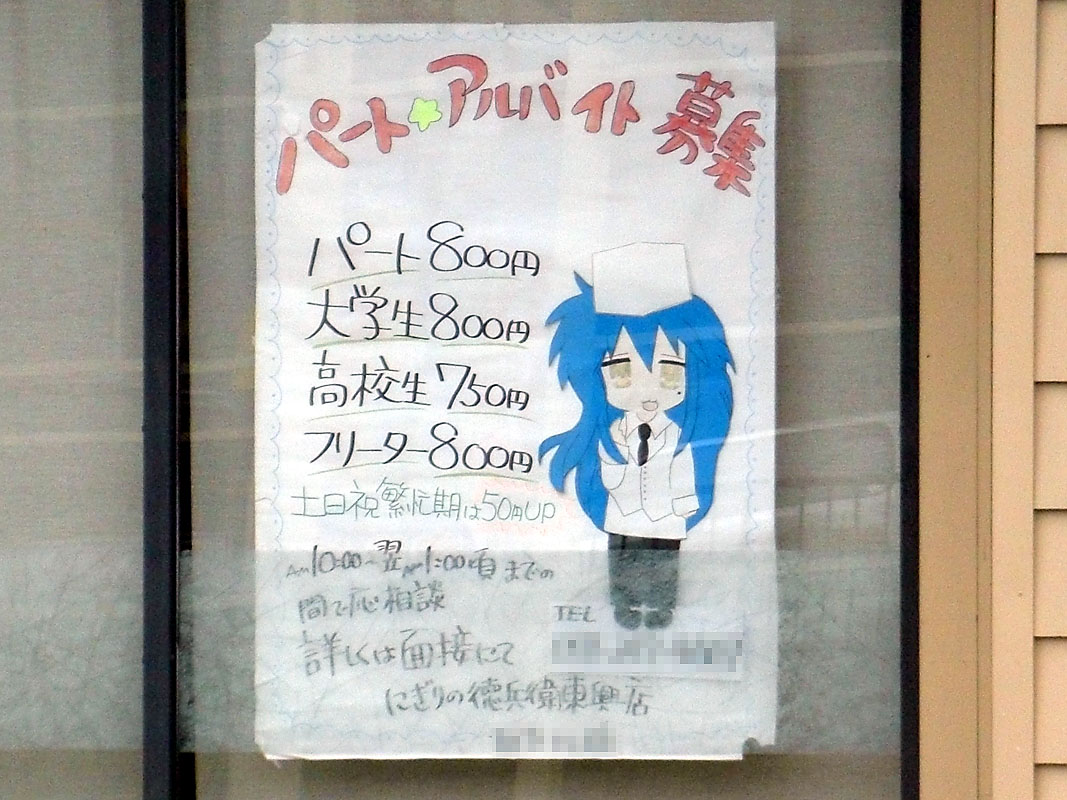 パート☆アルバイト募集
パート800円
大学生800円
高校生750円
フリーター800円
土日祝繁忙期は50円UP
AM10:00～翌AM1:00頃までの
間で応相談
詳しくは面接にて
TEL
にぎりの徳兵衛東興店